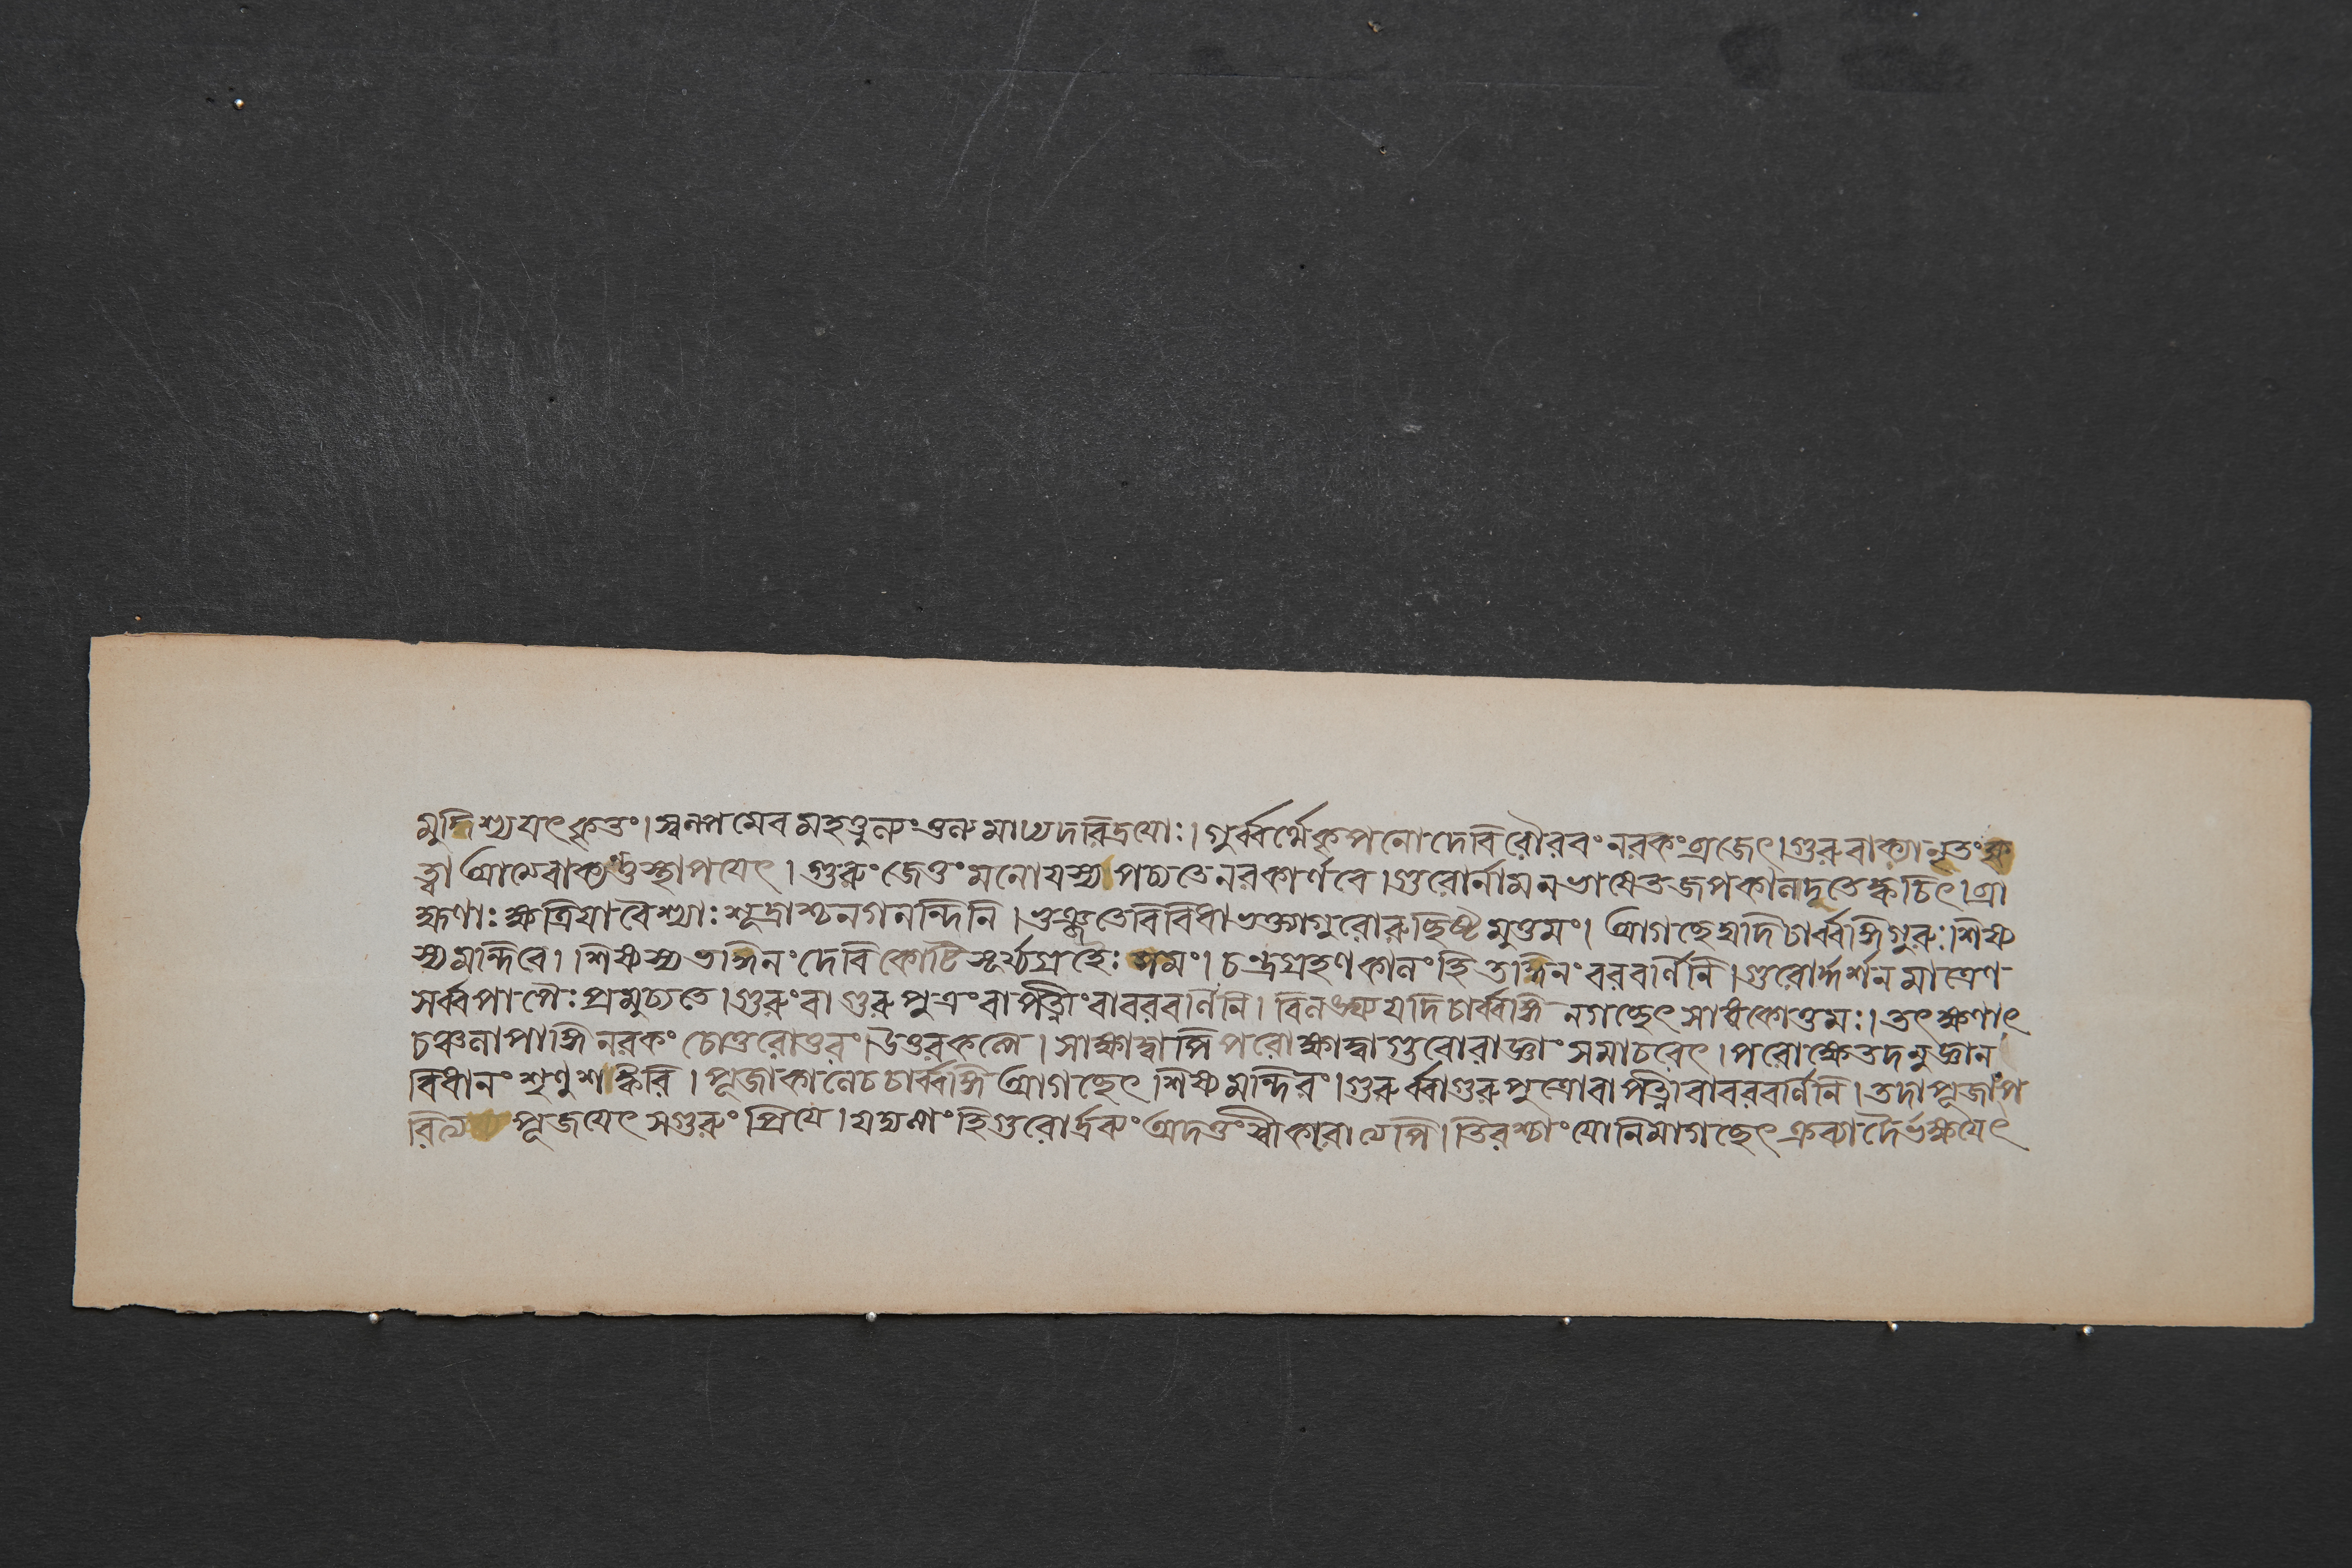 মুদ্দিশ্য যৎ কৃতং। স্বল্পমেব মহত্তুল্যং তুল্যমাঢ্যদরিদ্রয়োঃ। গুর্ব্বর্থে কৃপনো দেবি রৌরবং নরকং ব্রজেৎ। গুরুবাক্যানৃতং কৃ
ত্বা আত্মবাক্যন্তু স্থাপয়েৎ। গুরুং জেতুং মনো যস্য পচ্যতে নরকার্ণবে। গুরোর্নাম ন ভাষেত জপকালাদৃতে ক্বচিৎ। ব্রা
হ্মণাঃ ক্ষত্রিয়া বৈশ্যাঃ শূদ্রাশ্চ নগনন্দিনি। ভুঞ্জতে বিবিধা ভক্ত্যা গুরোরুচ্ছিষ্টমুত্তমং। আগচ্ছেদ্যদি চার্ব্বঙ্গি গুরুঃ শিষ্য
স্য মন্দিরে। শিষ্যস্য তদ্দিনং দেবি কোটিসূর্য্যগ্রহৈঃ সমং। চন্দ্রগ্রহণকালং হি তদ্দিনং বরবর্ণিনি। গুরোর্দ্দর্শনমাত্রেণ
সর্ব্বপাপৈঃ প্রমুচ্যতে। গুরুং বা গুরুপুত্রং বা পত্নীং বা বরবর্ণিনি। বিলঙ্ঘ্য যদি চার্ব্বঙ্গি ন গচ্ছেৎ সাধকোত্তমঃ। তৎক্ষণাৎ
চঞ্চলাপাঙ্গি নরকং চোত্তরোত্তরং। উত্তরকল্পে। সাক্ষাদ্বাপি পরোক্ষাদ্বা গুরোরাজ্ঞাং সমাচরেৎ। পরোক্ষে তদনুজ্ঞান
বিধানং শৃণু শঙ্করি। পূজাকালে চ চার্ব্বঙ্গি আগচ্ছেৎ শিষ্যমন্দিরং। গুরুর্ব্বা গুরুপুত্রো বা পত্নী বা বরবর্ণিনি। তদা পূজাং প
রিত্যজ্য পূজয়েৎ স্বগুরুং প্রিয়ে। হি গুরোর্দ্রব্যং অদত্তং স্বীকরোত্যপি। তিরশ্চাং যোনিমাগচ্ছেৎ ক্রব্যাদৈর্ভক্ষয়েৎ